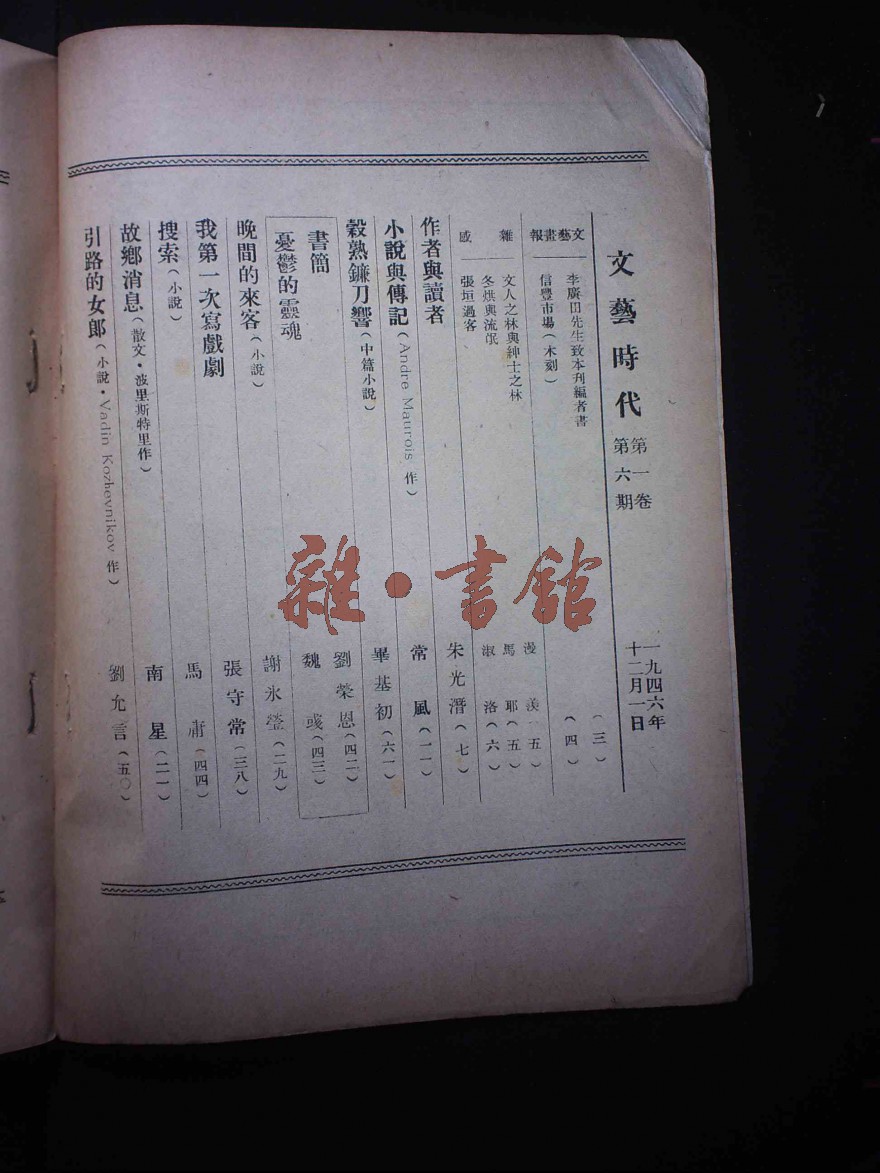 文藝時代 第一卷 第六期 一九四六年 十二月一日
文藝畫報
李廣田先生致本刊編者書 (三)
信豐市場(木刻) (四)
雜感
文人之林與紳士之林 漫 (五)
冬烘與流氓 馬耶(五)
張垣過客 淑洛(六)
作者與讀者 朱光潛(七)
小說與傳記(Andre Maurois 作) 常風(一一)
穀熟鐮刀響(中篇小說) 畢基初(六一)
書簡 劉榮恩(四二)
憂鬱的靈魂 魏彧(四三)
晚間的來客(小說) 謝冰瑩(二九)
我第一次寫戲劇 張守常(三八)
搜索(小說) 馬 (四四)
故鄉消息(散文·波里斯特里作) 南星(二一)
引路的女郎(小說·Vadin Kozhevnikov 作) 劉允言(五〇)
雜·書館